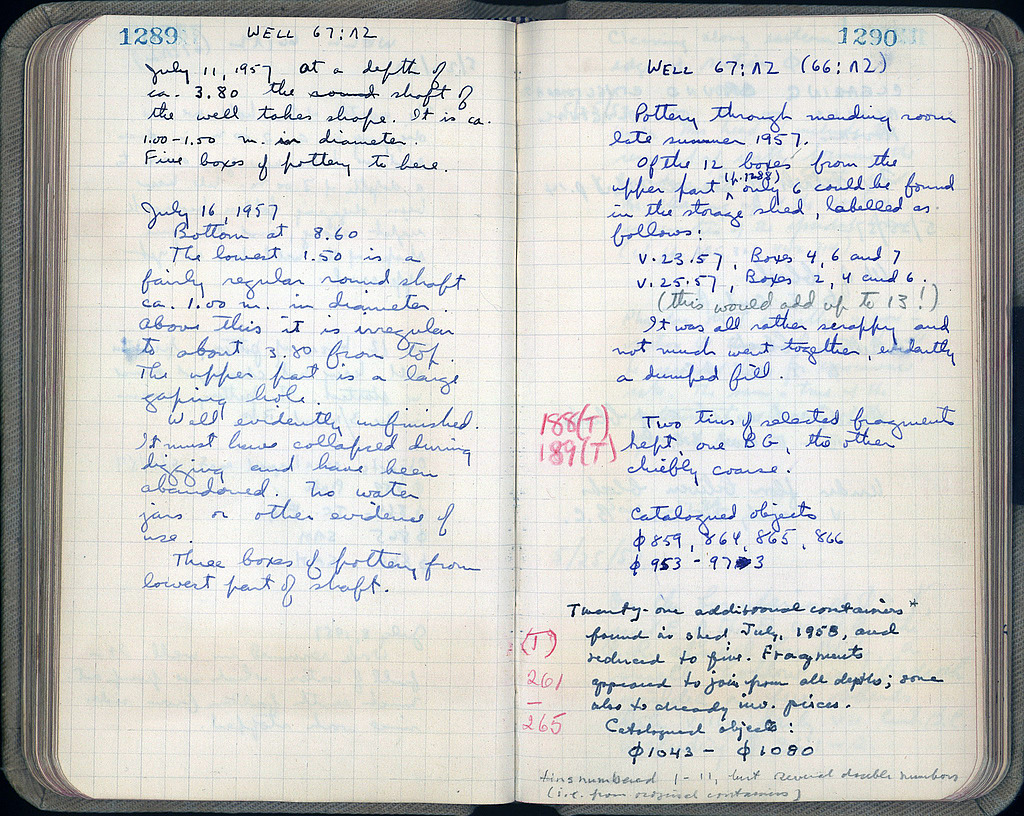 1289
WELL 67:Λ2
July 11, 1957 at a depth of
ca. 3.80 the sound shaft of
the well takes shape. It is ca.
1.00-1.50 m. in diameter.
Five boxes of pottery to here.
July 16, 1957
Bottom at 8.60
The lowest 1.50 is a
fairly regular round shaft
ca. 1.00 m. in diameter.
Above this it is irregular
to about 3.80 from top.
The upper part is a large
gaping hole.
Well evidently unfinished.
It must have collapsed during
digging and have been
abandoned. No water
jars or other evidence of
use.
Three boxes of pottery from
lowest part of shaft.
1290
WELL 67:Λ2 (66:Λ2)
Pottery through mending room
late summer 1957.
Of the 12 boxes from the
upper part (p.1288) only 6 could be found
in the storage shed, labelled as
follows:
V.23.57, Boxes 4, 6 and 7
V.25.57, Boxes 2, 4 and 6.
(this would add up to 13!)
It was all rather scrappy and
not much went together, evidently
a dumped fill.
188(T)
189(T)
Two tins of selected fragments
kept, one BG, the other
chiefly coarse.
Catalogued objects
φ859, 864, 865, 866
φ 953 - 973
Twenty-one additional containers*
found in shed July, 1958, and
reduced to five. Fragments
appeared to join from all depths; some
also to already inv. pieces.
(T)
261
-
265
Catalogued objects:
φ1043 - φ1080
tins numbered 1-11, but several double numbers
(i.e. from original containers)